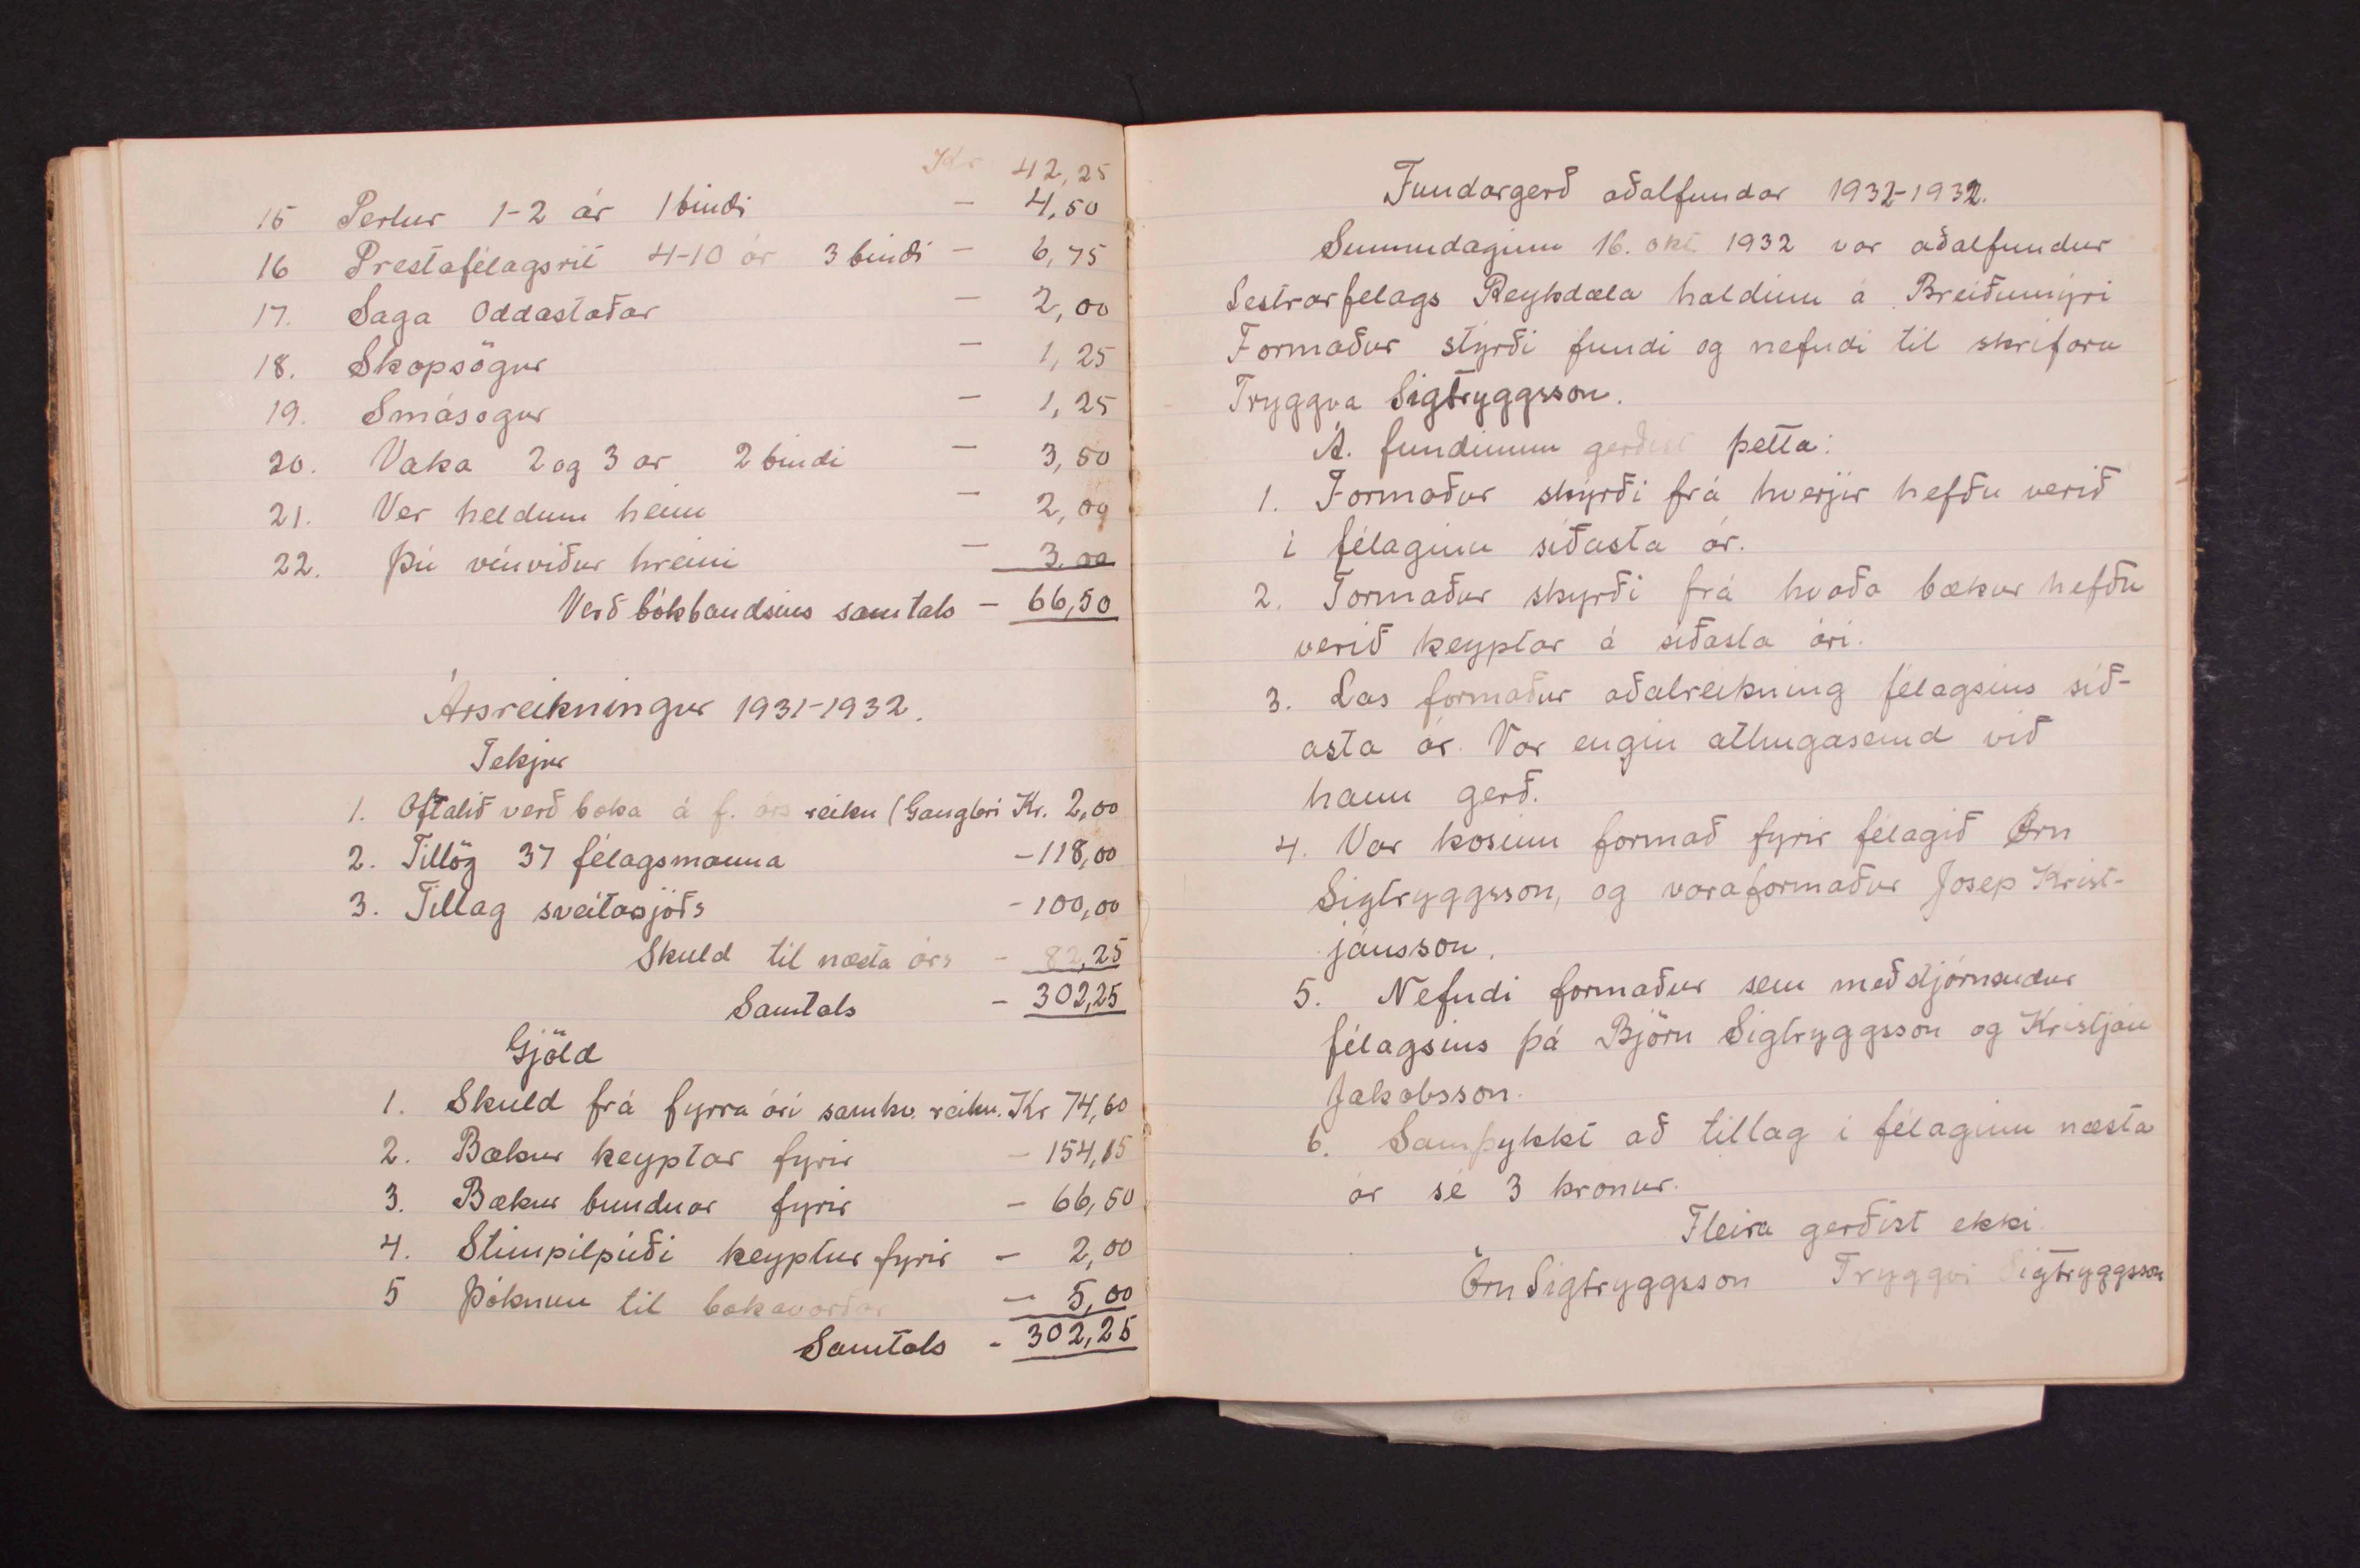 Kr 42,25
15 Perlur 1-2 ár 1 bindi - 4,50
16 Prestafélagsrit 4-10 ár 3 bindi - 6,75
17. Saga Oddastaðar - 2,00
18. Skopsögur - 1,25
19. Smásogur - 1,25
20. Vaka 2 og 3 ar 2 bindi - 3,50
21. Ver heldum heim - 2,00
22. Þú vínviður hreini - 3.00
Verð bókbandsins samtals - 66,50
Ársreikningur 1931-1932.
Tekjur
1. Oftalið verð boka á f. árs reikn (Gangleri Kr. 2,00
2. Tillög 37 félagsmanna - 118,00
3. Tillag sveitasjóðs - 100,00
Skuld til næsta árs - 82,25
Samtals - 302,25
Gjöld
1. Skuld frá fyrra ári samkv. reikn. Kr 74,60
2. Bækur keyptar fyrir - 154,15
3. Bækur bundnar fyrir - 66,50
4. Stimpilpúði keyptur fyrir - 2,00
5 Þóknun til bokavarðar - 5,00
Samtals - 302,25
Fundargerð aðalfundar 1932-1932.
Sunnudaginn 16. okt 1932 var aðalfundur
Lestrarfelags Reykdæla haldinn á Breiðumýri
Formaður stýrði fundi og nefndi til skrifara
Tryggva Sigtryggsson.
Á. fundinum gerðist þetta:
1. Formaður skýrði frá hverjir hefðu verið
í félaginu síðasta ár.
2. Formaður skyrði frá hvaða bækur hefðu
verið keyptar á síðasta ári.
3. Las formaður aðalreikning félagsins síð-
asta ár. Var engin athugasemd við
hann gerð.
4. Var kosinn formað fyrir félagið Örn
Sigtryggsson, og varaformaður Josep Krist-
jánsson.
5. Nefndi formaður sem meðstjórnendur
félagsins þá Björn Sigtryggsson og Kristján
Jakobsson.
6. Samþykkt að tillag í félaginu næsta
ár sé 3 kronur.
Fleira gerðist ekki
Örn Sigtryggsson Tryggvi Sigtryggsson